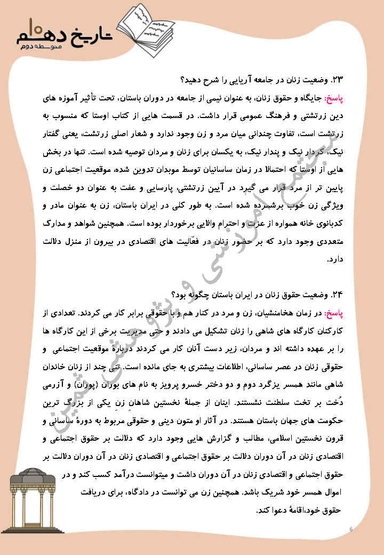 تاریخ دهم
متوسطه دوم
۲۳. وضعیت زنان در جامعه آریایی را شرح دهید؟
پاسخ: جایگاه و حقوق زنان، به عنوان نیمی از جامعه در دوران باستان، تحت تأثیر آموزه های
دین زرتشتی و فرهنگ عمومی قرار داشت. در قسمت هایی از کتاب اوستا که منسوب به
زرتشت است، تفاوت چندانی میان مرد و زن وجود ندارد و شعار اصلی زرتشت، یعنی گفتار
نیک، کردار نیک و پندار نیک، به یکسان برای زنان و مردان توصیه شده است. تنها در بخش
هایی از اوستا که احتمالا در زمان ساسانیان توسط موبدان تدوین شده، موقعیت اجتماعی زن
پایین تر از مرد قرار می گیرد در آیین زرتشتی، پارسایی و عفت به عنوان دو خصلت و
ویژگی زن خوب برشمرده شده است. به طور کلی در ایران باستان، زن به عنوان مادر و
کدبانوی خانه همواره از عزت و احترام والایی برخوردار بوده است. همچنین شواهد و مدارک
متعددی وجود دارد که بر حضور زنان در فعّالیت های اقتصادی در بیرون از منزل دلالت
دارد.
۲۴. وضعیت حقوق زنان در ایران باستان چگونه بود؟
پاسخ: در زمان هخامنشیان، زن و مرد در کنار هم و با حقوقی برابر کار می کردند. تعدادی از
کارکنان کارگاه های شاهی را زنان تشکیل می دادند و حتی مدیریت برخی از این کارگاه ها
را بر عهده داشته اند و مردان، زیر دست آنان کار می کردند دربارهٔ موقعیت اجتماعی و
حقوقی زنان در عصر ساسانی، اطلاعات بیشتری به جای مانده است. تنی چند از زنان خاندان
شاهی مانند همسر یزگرد دوم و دو دختر خسرو پرویز به نام های پوران (بوران) و آزرمی
دُخت بر تخت سلطنت نشستند. اینان از جملهٔ نخستین شاهان زن یکی از بزرگ ترین
حکومت های جهان باستان هستند. در آثار و متون دینی و حقوقی مربوط به دورهٔ ساسانی و
قرون نخستین اسلامی، مطالب و گزارش هایی وجود دارد که دلالت بر حقوق اجتماعی و
اقتصادی زنان در آن دوران دلالت بر حقوق اجتماعی و اقتصادی زنان در آن دوران دلالت بر
حقوق اجتماعی و اقتصادی زنان در آن دوران داشت و میتوانست درآمد کسب کند و در
اموال همسر خود شریک باشد. همچنین زن می توانست در دادگاه، برای دریافت
حقوق خود،اقامهٔ دعوا کند.